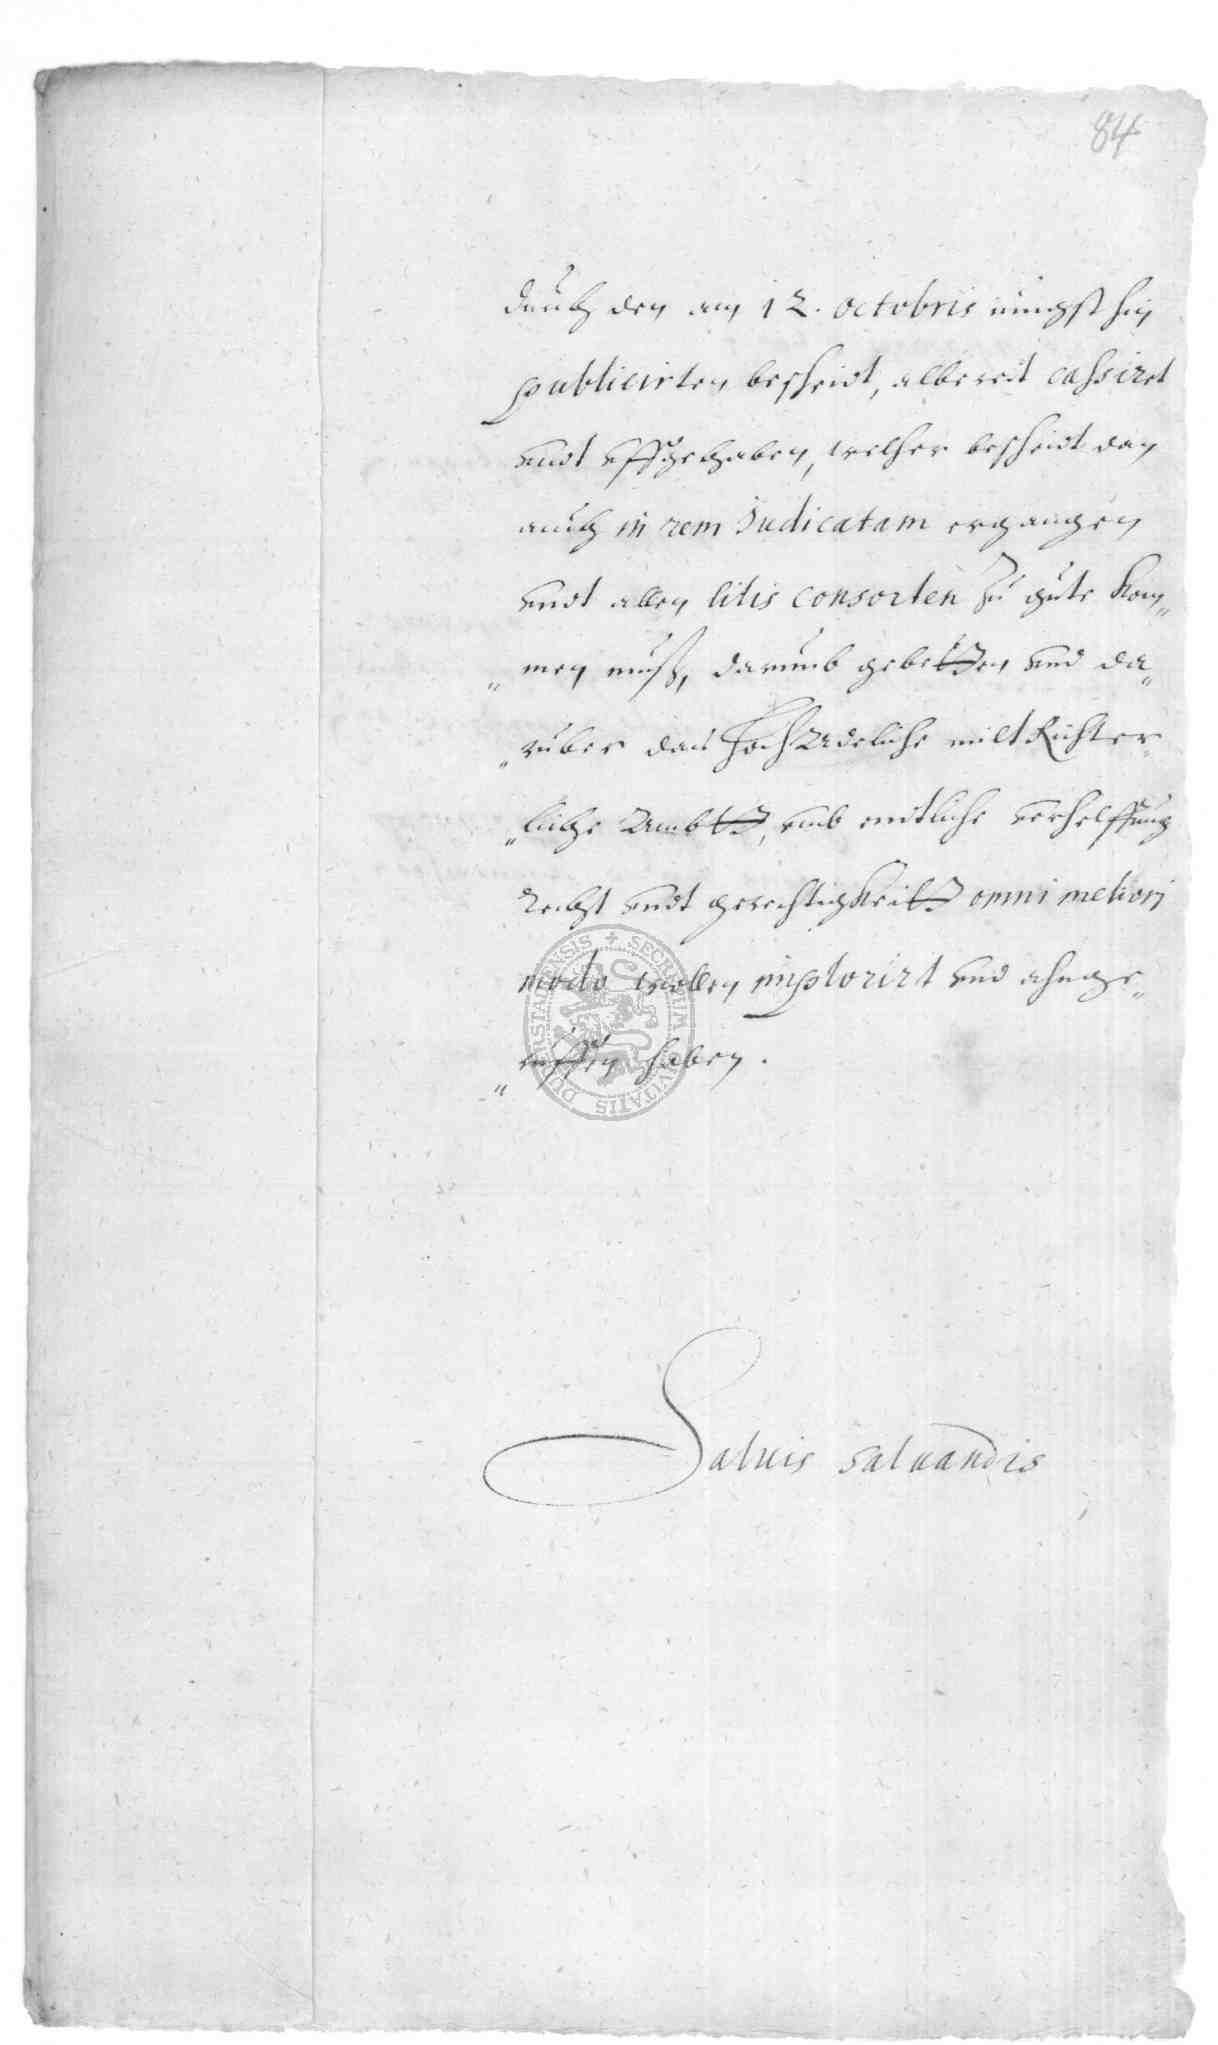 84
durch den am 12. octobris iungst hin
publicirten bescheidt, albereit cassiret
undt uffgehaben, welcher bescheidt dan
auch in rem Judicatam ergangen
undt allen litis consorten zu gute kom„
„men muß, darumb gebetten und da„
„ruber das HochAdeliche milt Richter„
„liche Ambtt, umb endtliche verhelffung
Rechst undt gerechtigkeitt omni meliori
modo wollen implorirt und ahnge„
„ruffen haben.
Saluis saluandis
SECRETUM CIVITATIS DUDERSTADENSIS